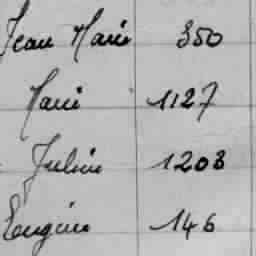 Jean Marie 350
Marie 1127
Julien 1208
Eugène 146